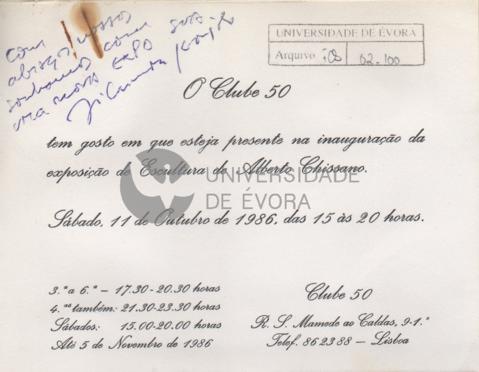 Com
abraços nossos
sonhamos com
uma nova expo
UNIVERSIDADE DE ÉVORA
Arquivo
02.100
O Clube 50
tem gosto em que esteja presente na inauguração da
exposição de Escultura de Alberto Chissano.
UNIVERSIDADE
DE ÉVORA
Sábado, 11 de Outubro de 1986, das 15 às 20 horas.
3.ª a 6.ª – 17.30-20.30 horas
4.ªs também: 21.30-23.30 horas
Sábados: 15.00-20.00 horas
Até 5 de Novembro de 1986
Clube 50
R. S. Mamede ao Caldas, 9-1.º
Telef. 86 23 88 – Lisboa